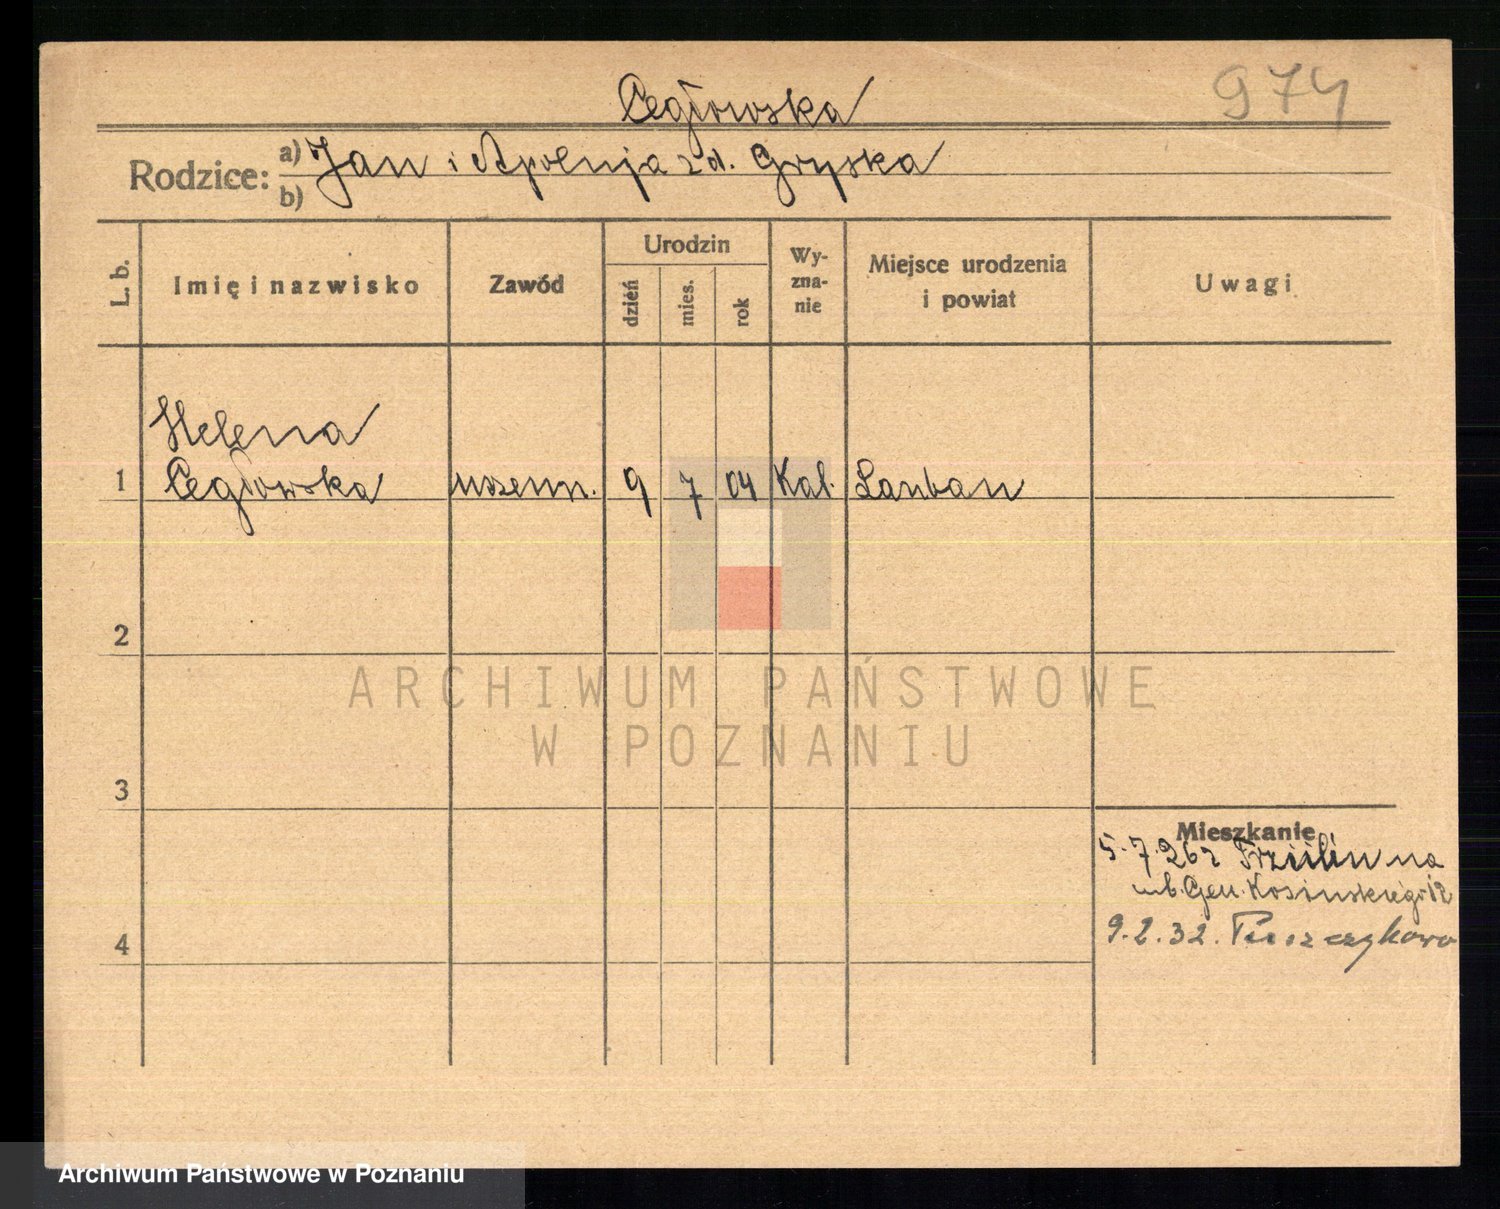 Cegłowska
974
Rodzice: a) Jan i Apolonja z d. Gryska
b)
L. b.
Imię i nazwisko
Zawód
Urodzin
dzień
mies.
rok
Wy-
zna-
nie
Miejsce urodzenia
i powiat
Uwagi
Helena
1 Cegłowska uczenn. 9 7 04 Kat. Lauban
2
3
4
Mieszkanie
5.7.26 z na
ul. Gen. Kosińskiego 12
9.2.32. Puszczykowo
ARCHIWUM PAŃSTWOWE
W POZNANIU
Archiwum Państwowe w Poznaniu